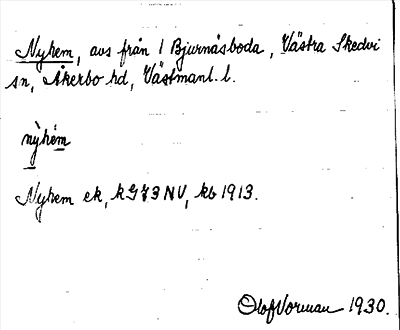 Nyhem, avs från 1 Bjurnäsboda, Västra Skedvi
sn, Åkerbo hd, Västmanl. l.
nỳhém
Nyhem ek, k G73NV, kb 1913.
Olof Vorman 1930.